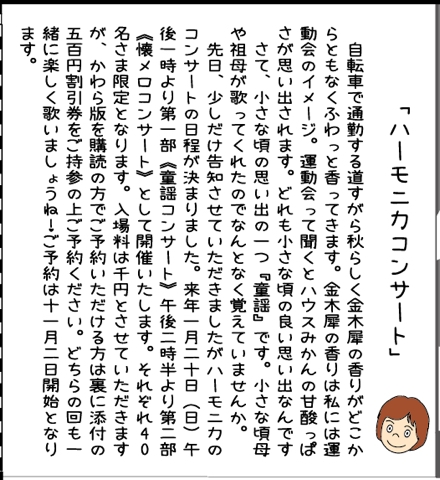 「ハーモニカコンサート」
自転車で通勤する道すがら秋らしく金木犀の香りがどこか
らともなくふわっと香ってきます。金木犀の香りは私には運
動会のイメージ。運動会って聞くとハウスみかんの甘酸っぱ
さが思い出されます。どれも小さな頃の良い思い出なんです
さて、小さな頃の思い出の一つ『童謡』です。小さな頃母
や祖母が歌ってくれたのでなんとなく覚えていませんか。
先日、少しだけ告知させていただきましたがハーモニカの
コンサートの日程が決まりました。来年一月二十日（日）午
後一時より第一部《童謡コンサート》午後二時半より第二部
《懐メロコンサート》として開催いたします。それぞれ４０
名さま限定となります。入場料は千円とさせていただきます
が、かわら版を購読の方でご予約いただける方は裏に添付の
五百円割引券をご持参の上ご予約ください。どちらの回も一
緒に楽しく歌いましょうね！ご予約は十一月二日開始となり
ます。